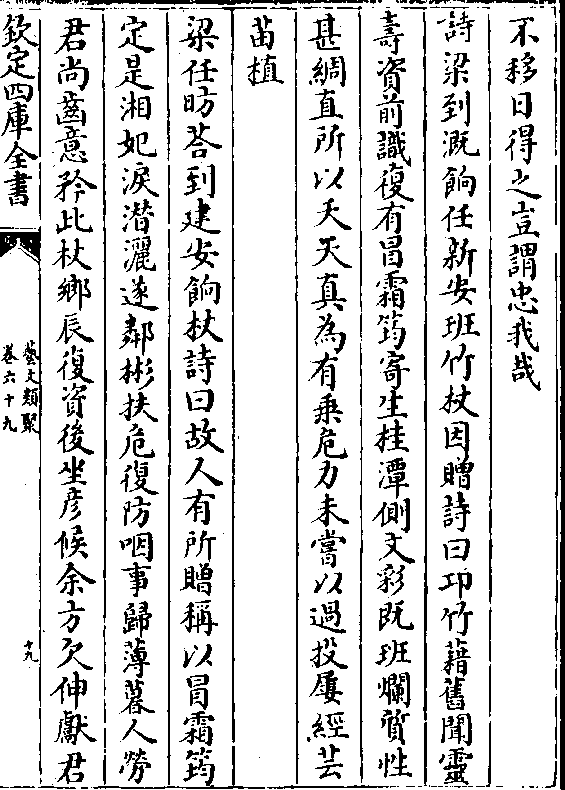 不移日得之豈謂忠我哉
詩梁到溉餉任新安班竹杖因贈詩曰卭竹藉舊聞靈
壽資前識復有冒霜筠寄生桂潭側文彩既班爛質性
甚綢直所以夭天真為有乗危力未嘗以過投屢經芸
苗植
梁任昉荅到建安餉杖詩曰故人有所贈稱以冒霜筠
定是湘妃淚潜灑遂鄰彬扶危復防咽事歸薄暮人勞
君尚齒意矜此杖鄉辰復資後坐彦候余方欠伸獻君
欽定四庫全書
藝文類聚
卷六十九
十九